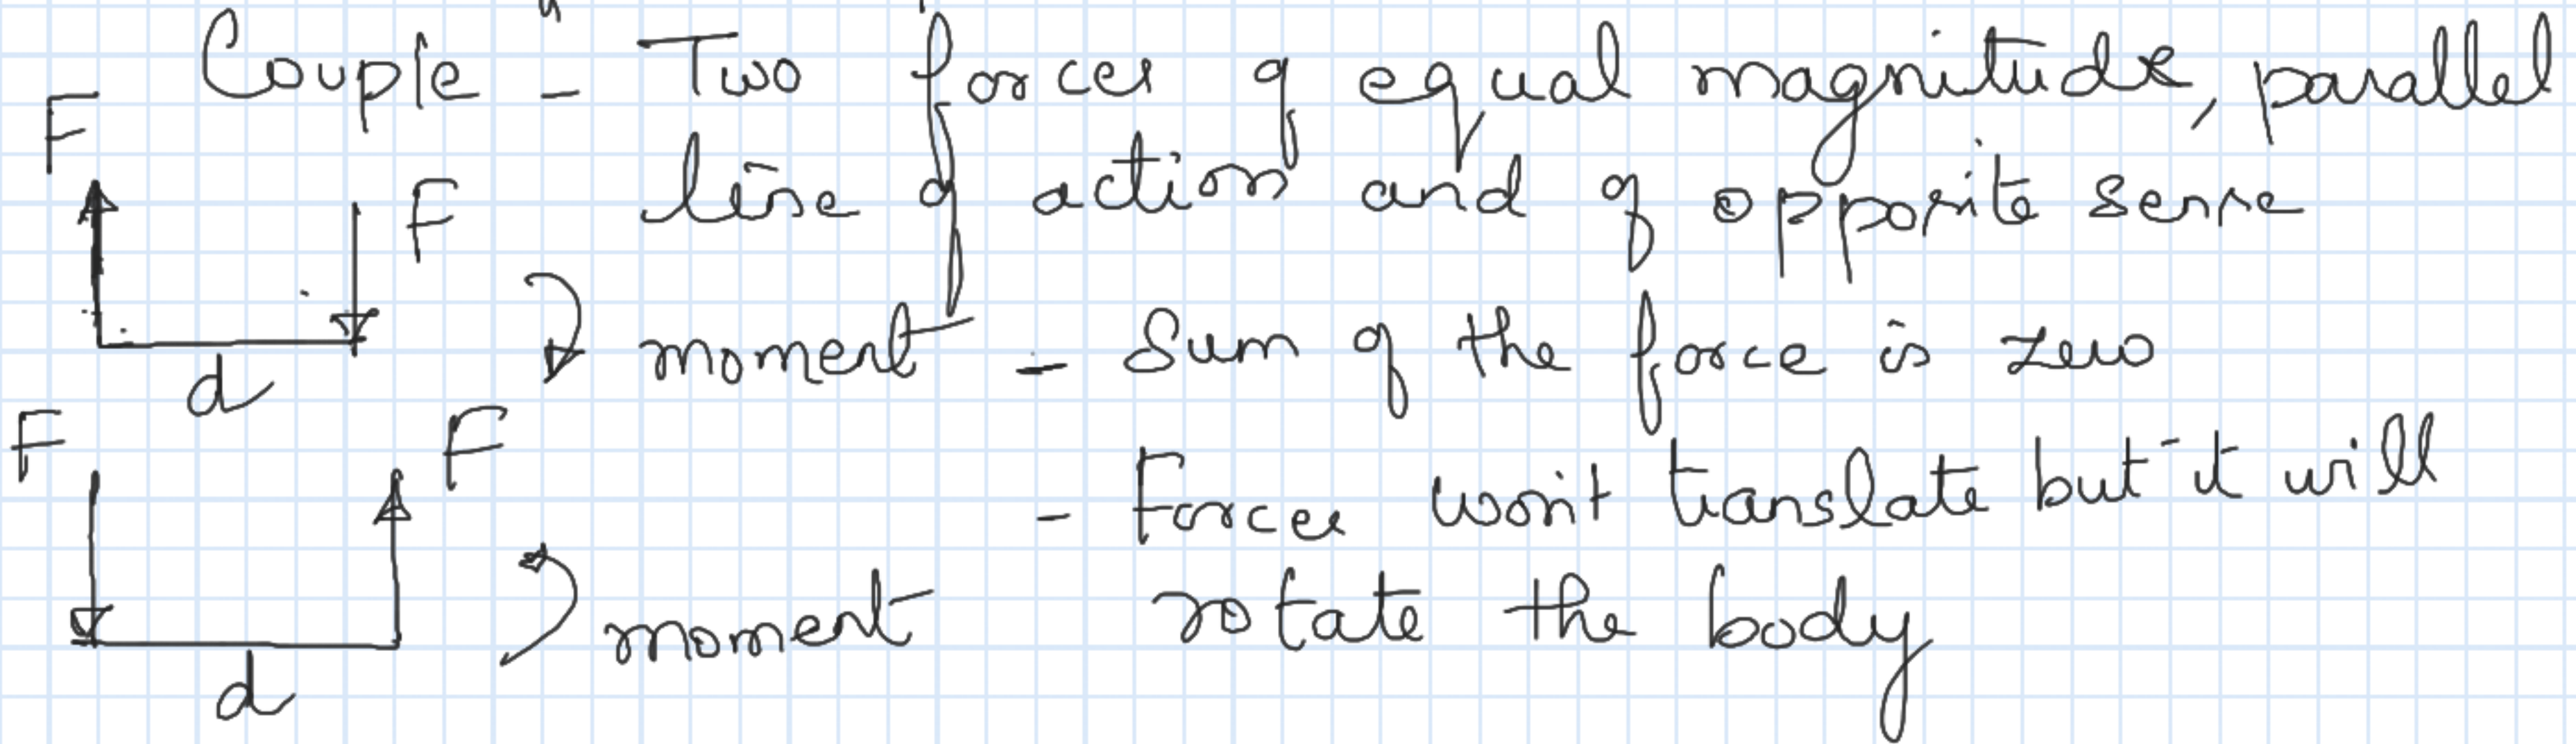 Couple - Two forces of equal magnitude, parallel
F
line of action and of opposite sense
F
moment - Sum of the force is zero
d
F F
- Forces won't translate but it will
moment rotate the body
d